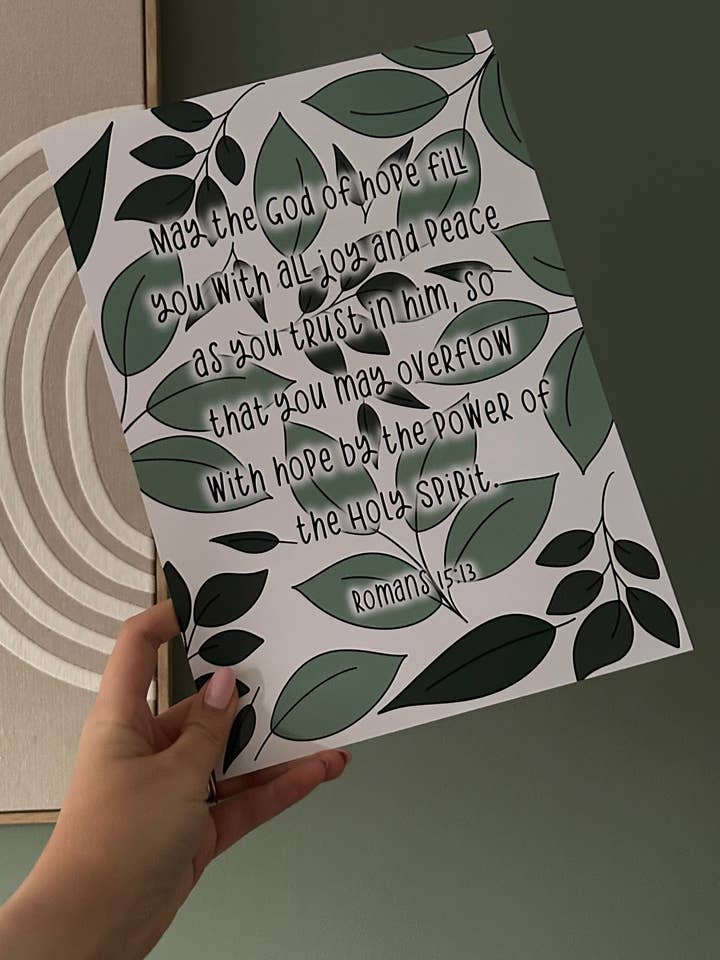 May the God of hope fill
you with all joy and peace
as you trust in him, so
that you may overflow
with hope by the power of
the Holy Spirit.
Romans 15:13